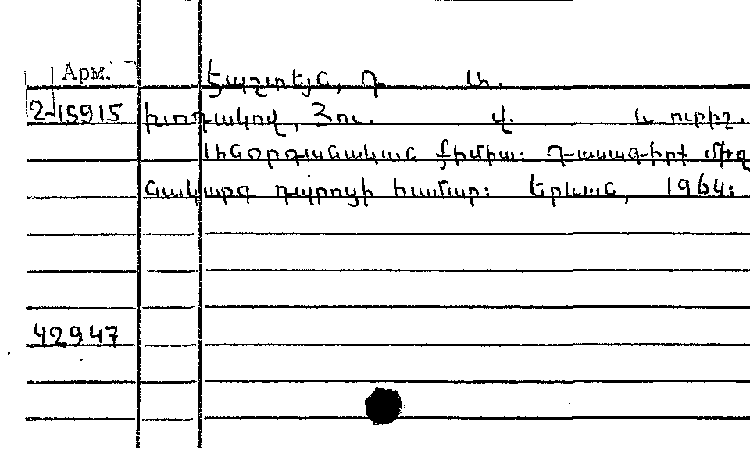 Арм.
Էպշտեյն, Դ Ա.
2-15915 Խոդակով, Յու. Վ. և ուրիշ.
Անօրգանական քիմիա: Դասագիրք միջ
նակարգ դպրոցի համար: Երևան, 1964:
42947